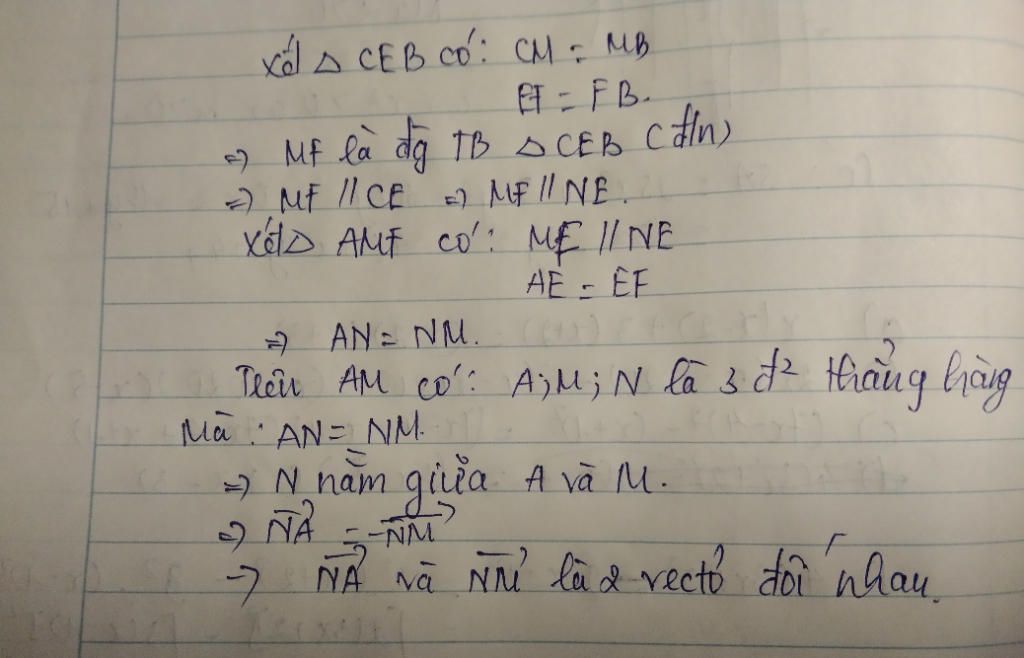 Xét △ CEB có: CM = MB
EF = FB.
=> MF là đg TB △ CEB (đ/n)
=> MF // CE => MF // NE.
Xét △ AMF có: MF // NE
AE = EF
=> AN = NM.
Trên AM có: A; M; N là 3 đ² thẳng hàng
Mà: AN = NM.
=> N nằm giữa A và M.
=> \overrightarrow{NA} = -\overrightarrow{NM}
-> \overrightarrow{NA} và \overrightarrow{NM} là 2 vectơ đối nhau.